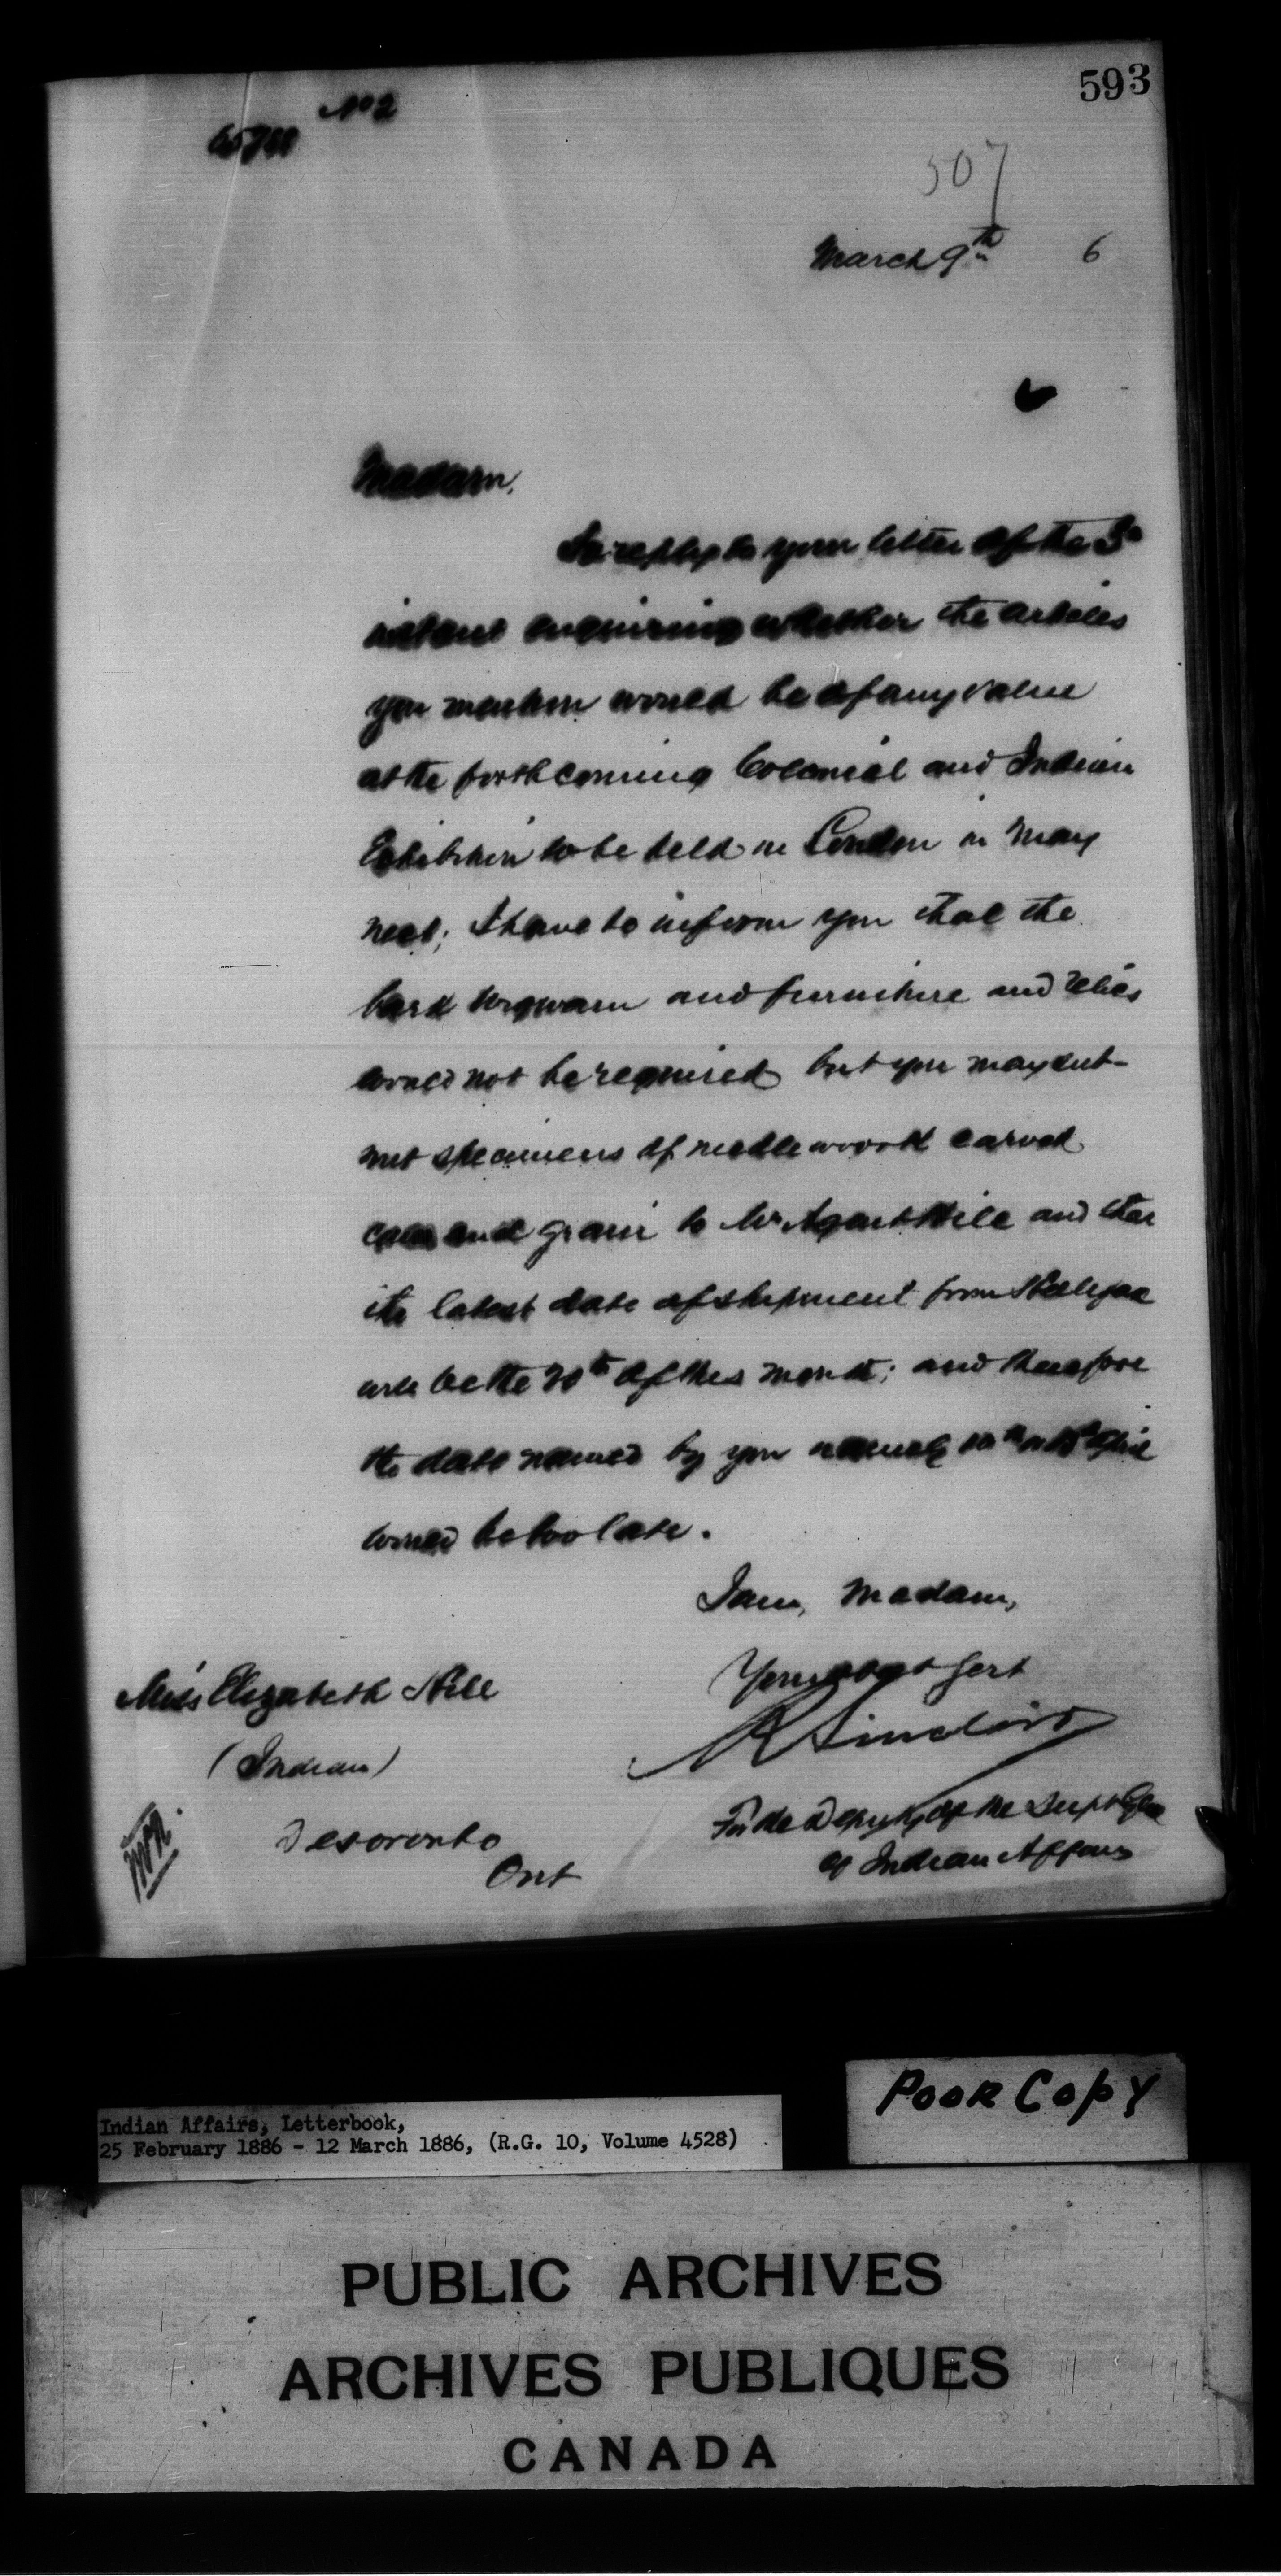 593
No 2
507
March 9th 6
Madam,
In reply to your letter of the 3d
instant enquiring whether the articles
you mention would be of any value
at the forthcoming Colonial and Indian
Exhibition to be held in London in May
next; I have to inform you that the
bark wigwam and furniture and relics
would not be required but you may sub-
mit specimens of needlework carved
and grain to Mr Agent Hill and that
the latest date of shipment from Halifax
will be the 20th of this month; and therefore
the date named by you namely April
would be too late.
I am, Madam,
Your obdt Sert
R Sinclair
For the Deputy of the Supt Genl
of Indian Affairs
Miss Elizabeth Hill
(Indian)
Deseronto
Ont
Poor Copy
Indian Affairs, Letterbook,
25 February 1886 - 12 March 1886, (R.G. 10, Volume 4528)
PUBLIC ARCHIVES
ARCHIVES PUBLIQUES
CANADA